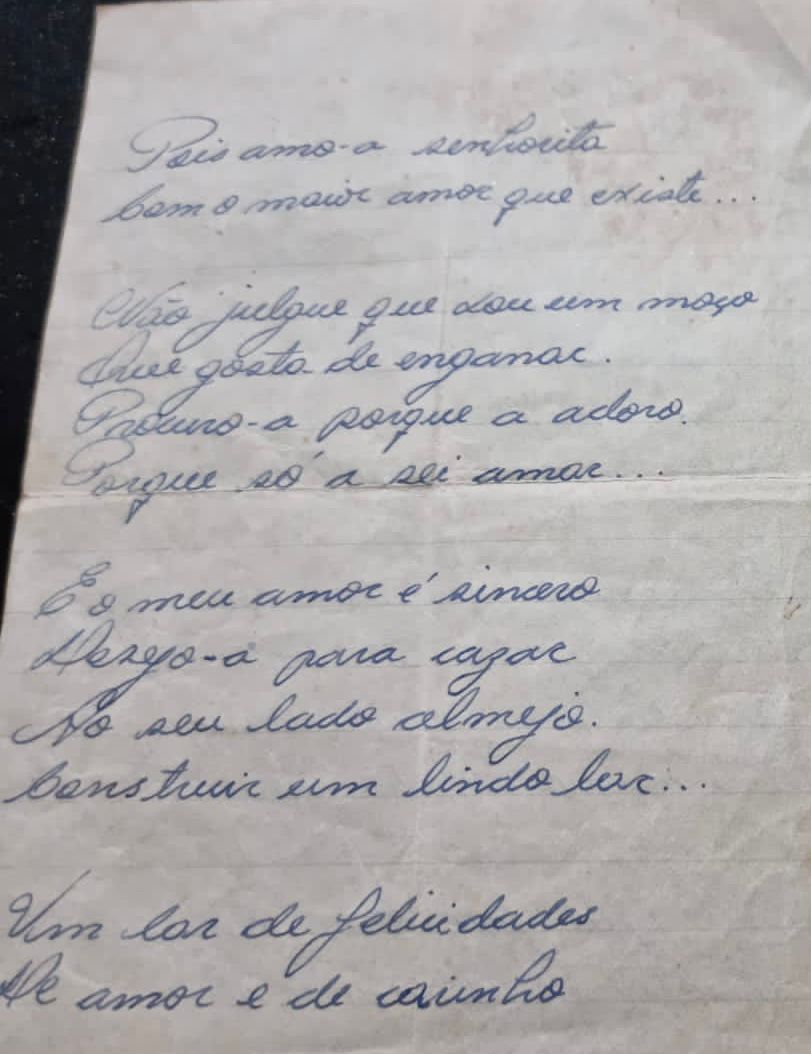 Pois amo-a senhorita
Com o maior amor que existe...
Não julgue que sou um moço
Que gosta de enganar.
Procuro-a porque a adoro.
Porque só a sei amar...
E o meu amor é sincero
Dezejo-a para cazar
Ao seu lado almejo.
Construir um lindo lar...
Um lar de felicidades
De amor e de carinho